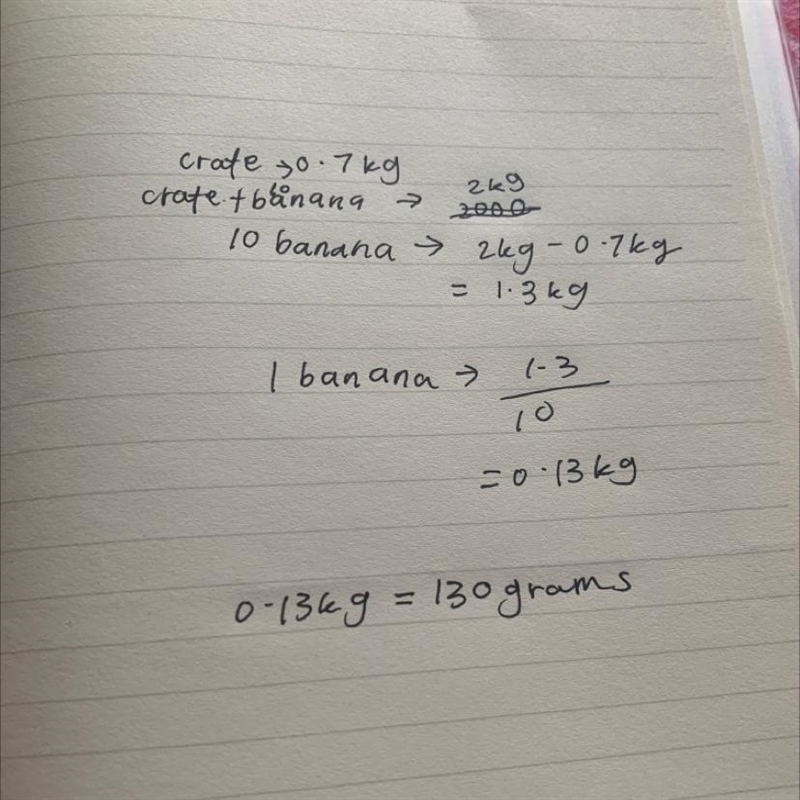 crate → 0.7kg
2kg
crate + banana → 2000
10 banana → 2kg - 0.7kg
= 1.3kg
1 banana → 1.3
10
= 0.13kg
0.13kg = 130grams